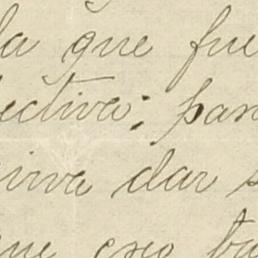 la que fue
ectiva; par
viva dar s
que creo